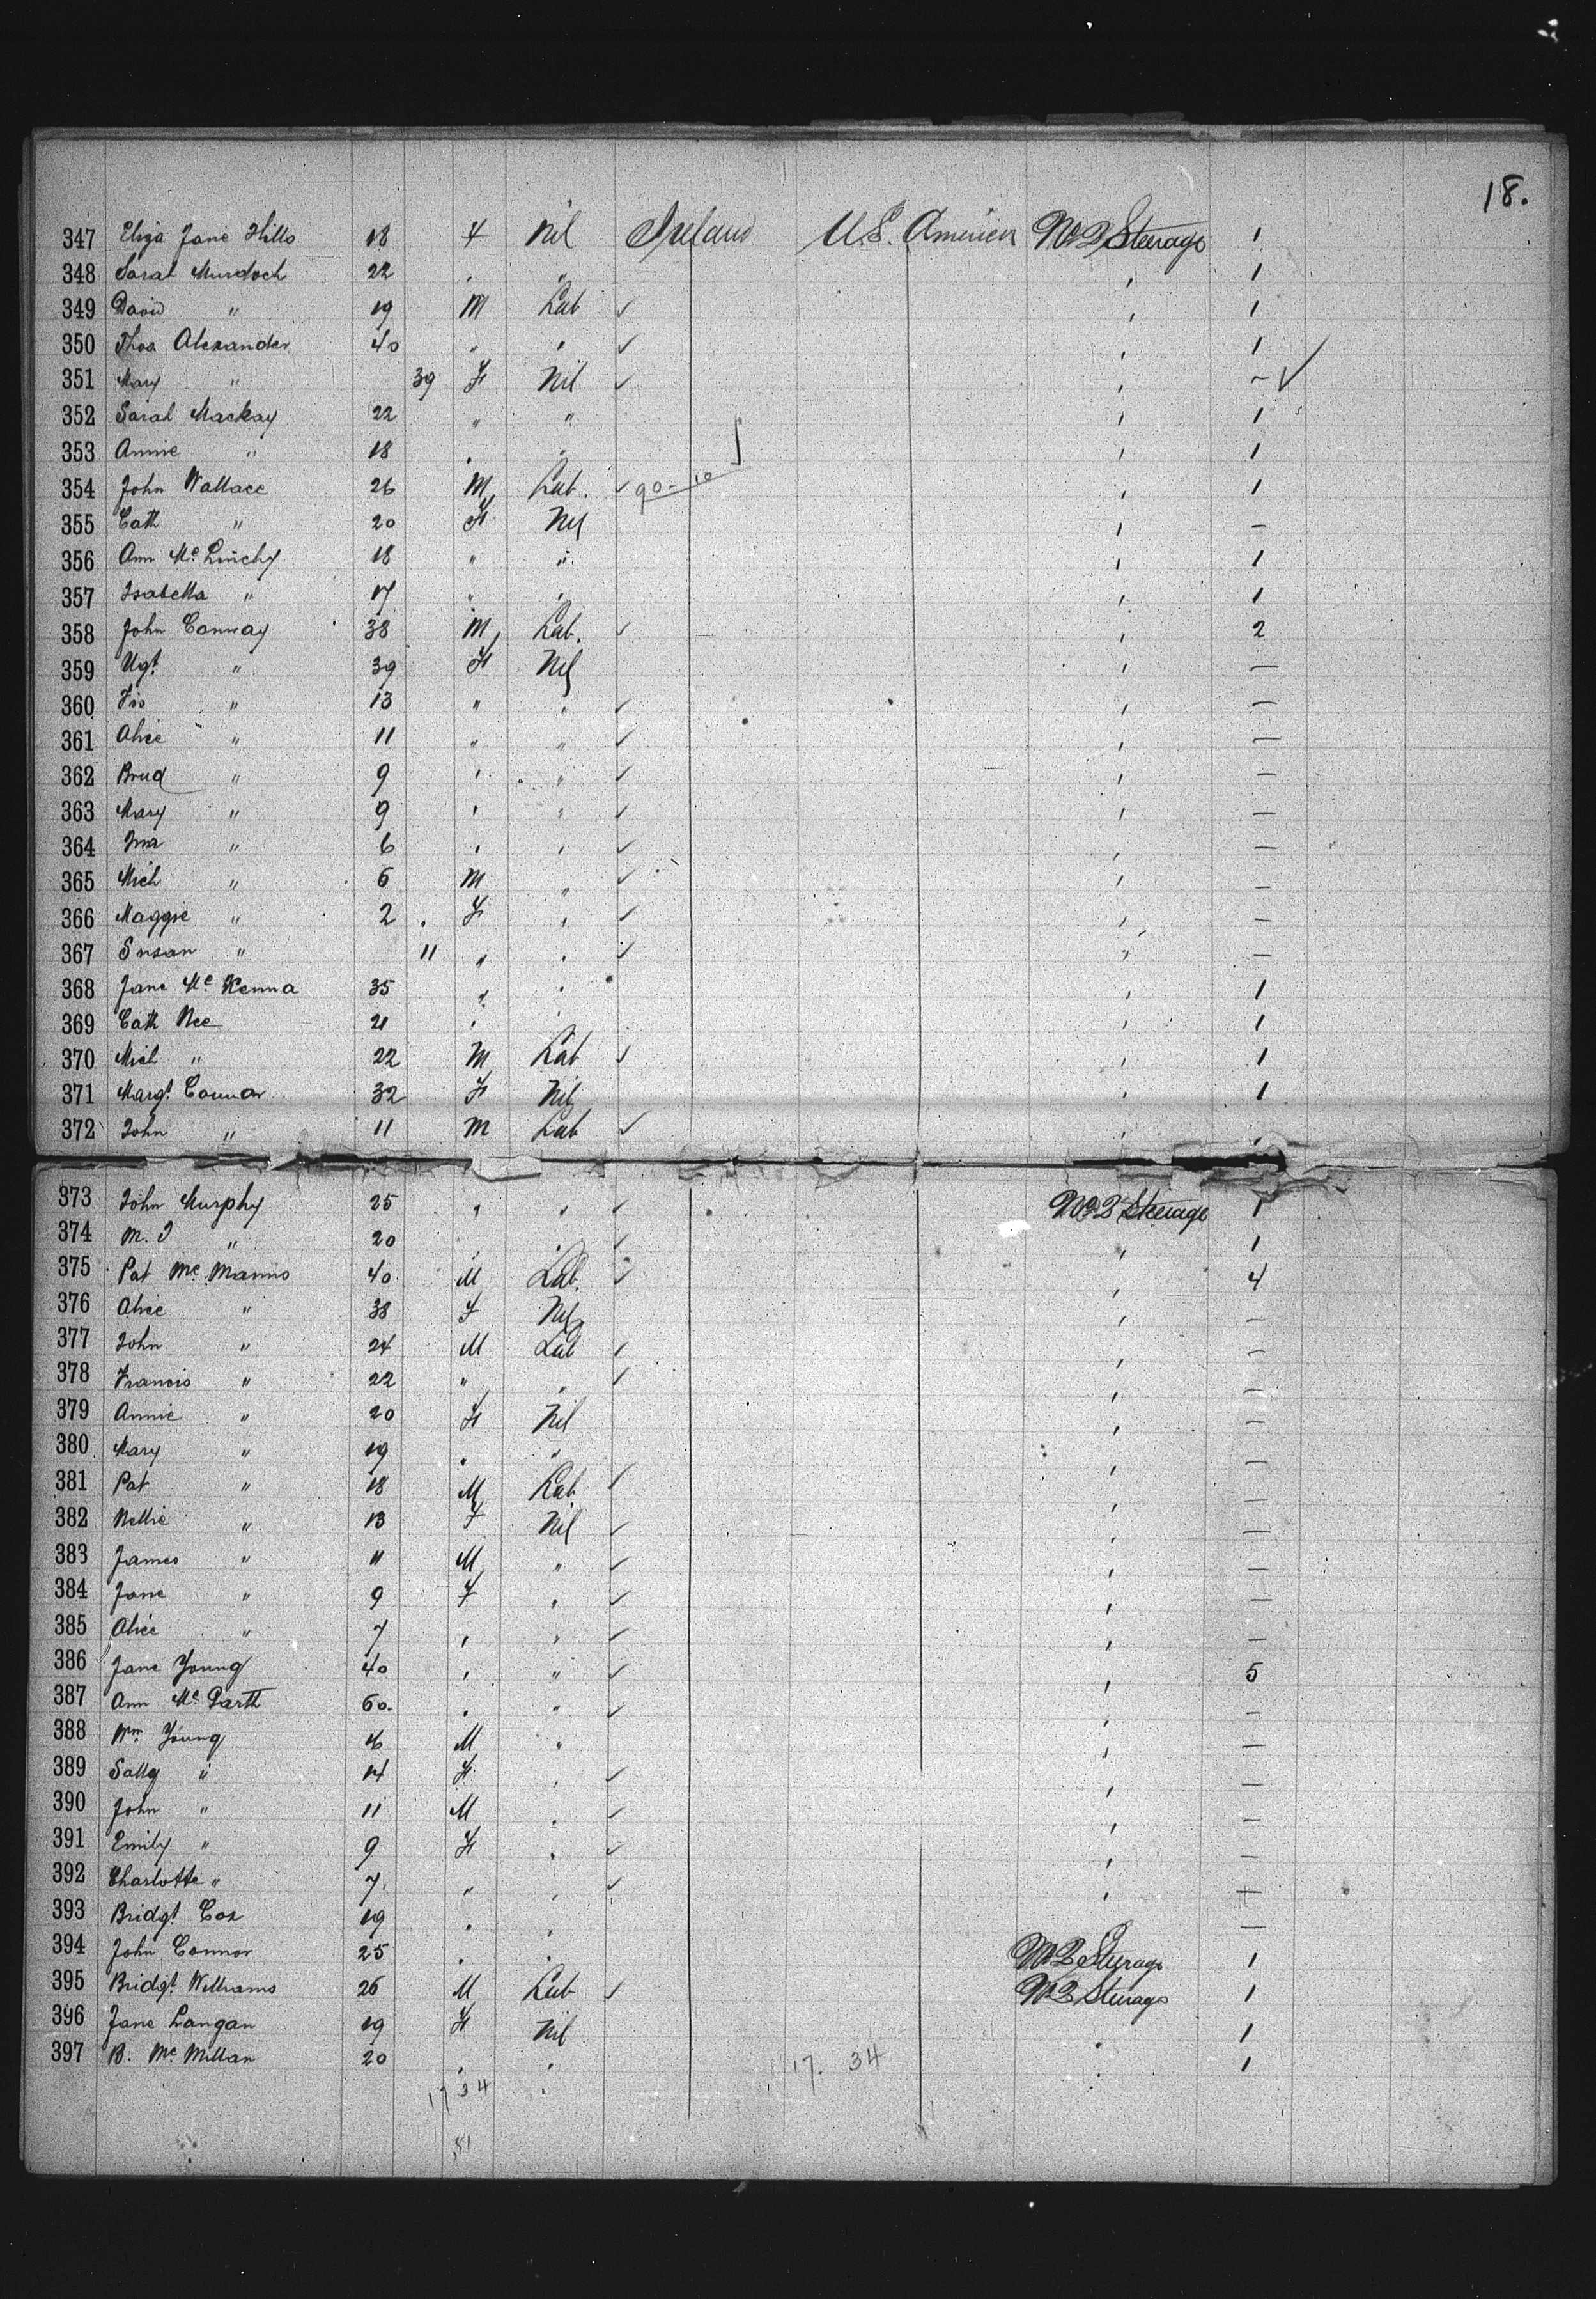 18.
347 Eliza Jane Hills 18 F Nil Ireland U.S. America No 2 Steerage 1
348 Sarah Murdoch 22 " " " 1
349 David " 19 M Lab ✓ " 1
350 Thos Alexander 40 " " ✓ " 1
351 Mary " 39 F Nil ✓ " - ✓
352 Sarah Mackay 22 " " " 1
353 Annie " 18 " " " 1
354 John Wallace 26 M Lab. ✓ 90-10 " 1
355 Cath " 20 F Nil " -
356 Ann Mc Linchy 18 " " " 1
357 Isabella " 17 " " " 1
358 John Conway 38 M Lab. ✓ " 2
359 " 39 F Nil " -
360 " 13 " " ✓ " -
361 Alice " 11 " " ✓ " -
362 " 9 " " ✓ " -
363 Mary " 9 " " ✓ " -
364 " 6 " " ✓ " -
365 Mich " 6 M " ✓ " -
366 Maggie " 2 F " ✓ " -
367 Susan " 11 " " ✓ " -
368 Jane Mc Kenna 35 " " " 1
369 Cath Nee 21 " " " 1
370 Mich " 22 M Lab ✓ " 1
371 Margt Connor 32 F Nil " 1
372 John " 11 M Lab ✓ " "
373 John Murphy 25 " " ✓ No 2 Steerage 1
374 M. J " 20 " " ✓ " 1
375 Pat Mc Manus 40 M Lab. ✓ " 4
376 Alice " 38 F Nil " -
377 John " 24 M Lab ✓ " -
378 Francis " 22 " " ✓ " -
379 Annie " 20 F Nil " -
380 Mary " 19 " " " -
381 Pat " 18 M Lab ✓ " -
382 Nellie " 13 F Nil ✓ " -
383 James " 11 M " ✓ " -
384 Jane " 9 F " ✓ " -
385 Alice " 7 " " ✓ " -
386 Jane Young 40 " " ✓ " 5
387 Ann Mc Garth 60. " " ✓ " -
388 Wm Young 16 M " " -
389 Sally " 14 F " ✓ " -
390 John " 11 M " ✓ " -
391 Emily " 9 F " ✓ " -
392 Charlotte " 7 " " ✓ " -
393 Bridgt Cox 19 " " -
394 John Connor 25 " " No 2 Steerage 1
395 Bridgt Williams 26 M Lab ✓ No 2 Steerage 1
396 Jane Langan 19 F Nil " 1
397 B. Mc Millan 20 " " " 1
17. 34
17 34 "
51